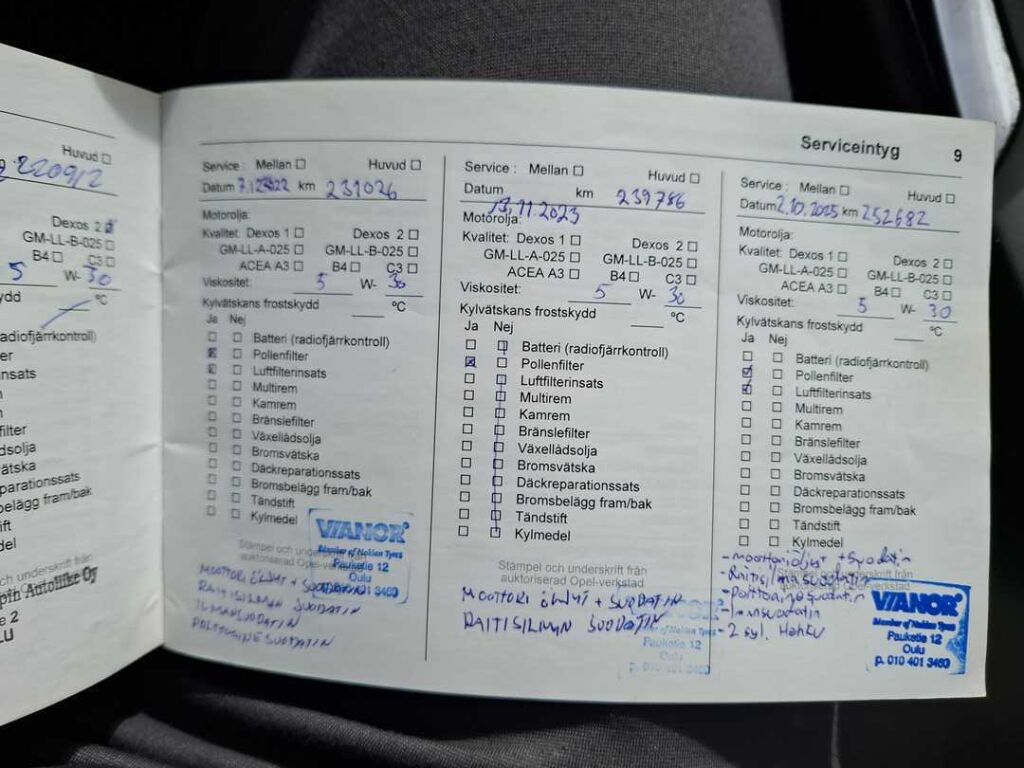 Serviceintyg 9
Huvud
2209/2
Dexos 2
GM-LL-B-025
B4 C3
5 W- 30
ydd °C
adiofjärrkontroll)
er
nsats
filter
dsolja
ätska
parationssats
belägg fram/bak
ift
del
ch underskrift från
2
LU
Service : Mellan Huvud
Datum 7.12.2022 km 231026
Motorolja:
Kvalitet: Dexos 1 Dexos 2
GM-LL-A-025 GM-LL-B-025
ACEA A3 B4 C3
Viskositet: 5 W- 30
Kylvätskans frostskydd °C
Ja Nej
Batteri (radiofjärrkontroll)
Pollenfilter
Luftfilterinsats
Multirem
Kamrem
Bränslefilter
Växellådsolja
Bromsvätska
Däckreparationssats
Bromsbelägg fram/bak
Tändstift
Kylmedel
Stämpel och underskrift från
auktoriserad Opel-verkstad
VIANOR
Member of Nokian Tyres
Pauketie 12
Oulu
p. 010 401 3460
MOOTTORI ÖLJYT + SUODATIN
RAITISILMAN SUODATIN
ILMANSUODATIN
POLTTOAINESUODATIN
Service : Mellan Huvud
Datum km 239786
13.11.2023
Motorolja:
Kvalitet: Dexos 1 Dexos 2
GM-LL-A-025 GM-LL-B-025
ACEA A3 B4 C3
Viskositet: 5 W- 30
Kylvätskans frostskydd °C
Ja Nej
Batteri (radiofjärrkontroll)
Pollenfilter
Luftfilterinsats
Multirem
Kamrem
Bränslefilter
Växellådsolja
Bromsvätska
Däckreparationssats
Bromsbelägg fram/bak
Tändstift
Kylmedel
Stämpel och underskrift från
auktoriserad Opel-verkstad
MOOTTORI ÖLJYT + SUODATIN
RAITISILMAN SUODATIN
VIANOR
Member of Nokian Tyres
Pauketie 12
Oulu
p. 010 401 3460
Service : Mellan Huvud
Datum 2.10.2025 km 252682
Motorolja:
Kvalitet: Dexos 1 Dexos 2
GM-LL-A-025 GM-LL-B-025
ACEA A3 B4 C3
Viskositet: 5 W- 30
Kylvätskans frostskydd °C
Ja Nej
Batteri (radiofjärrkontroll)
Pollenfilter
Luftfilterinsats
Multirem
Kamrem
Bränslefilter
Växellådsolja
Bromsvätska
Däckreparationssats
Bromsbelägg fram/bak
Tändstift
Kylmedel
Stämpel och underskrift från
auktoriserad Opel-verkstad
- moottoriöljyt + suodatin
- Raitisilmasuodatin
- polttoainesuodatin
- ilmansuodatin
- 2 syl. Hehku
VIANOR
Member of Nokian Tyres
Pauketie 12
Oulu
p. 010 401 3460